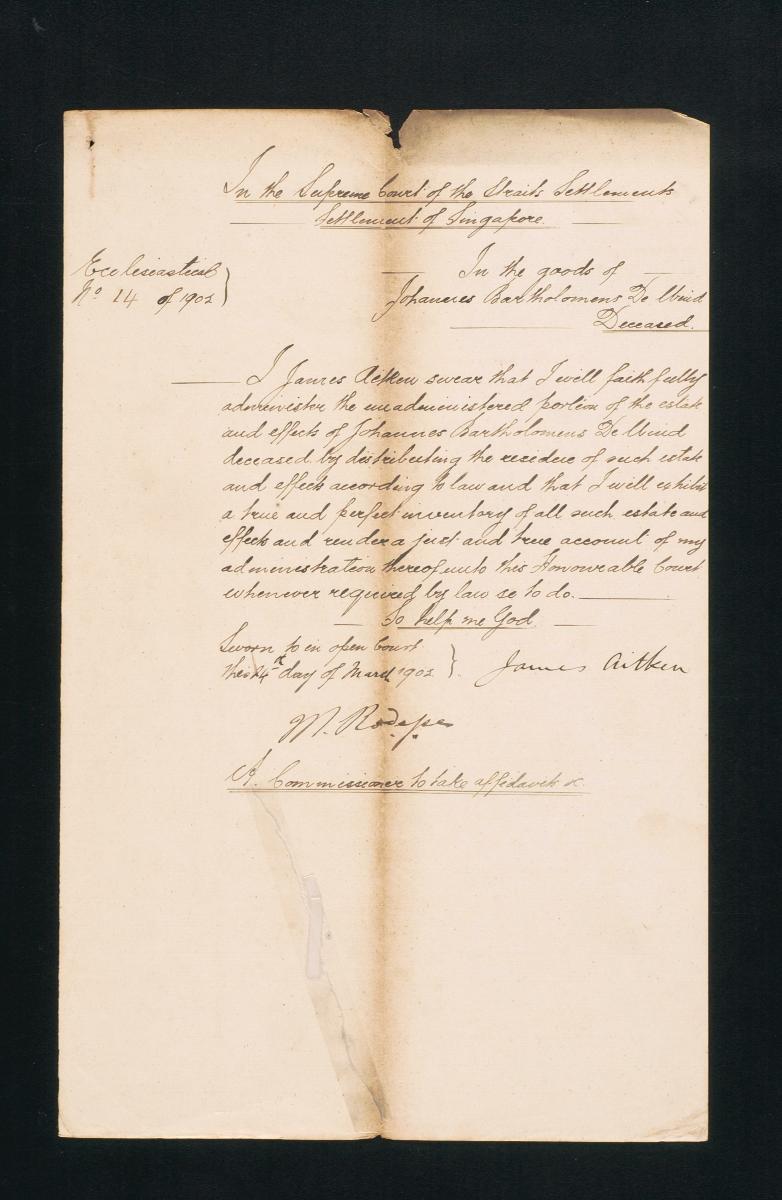 In the Supreme Court of the Straits Settlements
Settlement of Singapore
Ecclesiastical
No 14 of 1902
In the goods of
Johannes Bartholomens De Wind
Deceased.
I James Aitken swear that I will faithfully
administer the unadministered portion of the estate
and effects of Johannes Bartholomens De Wind
deceased by distributing the residue of such estate
and effects according to law and that I will exhibit
a true and perfect inventory of all such estate and
effects and render a just and true account of my
administration thereof unto this Honourable Court
whenever required by law so to do.
So help me God
Sworn to in open Court
this 14th day of March 1902
James Aitken
M.
A. Commissioner to take affidavits &c.